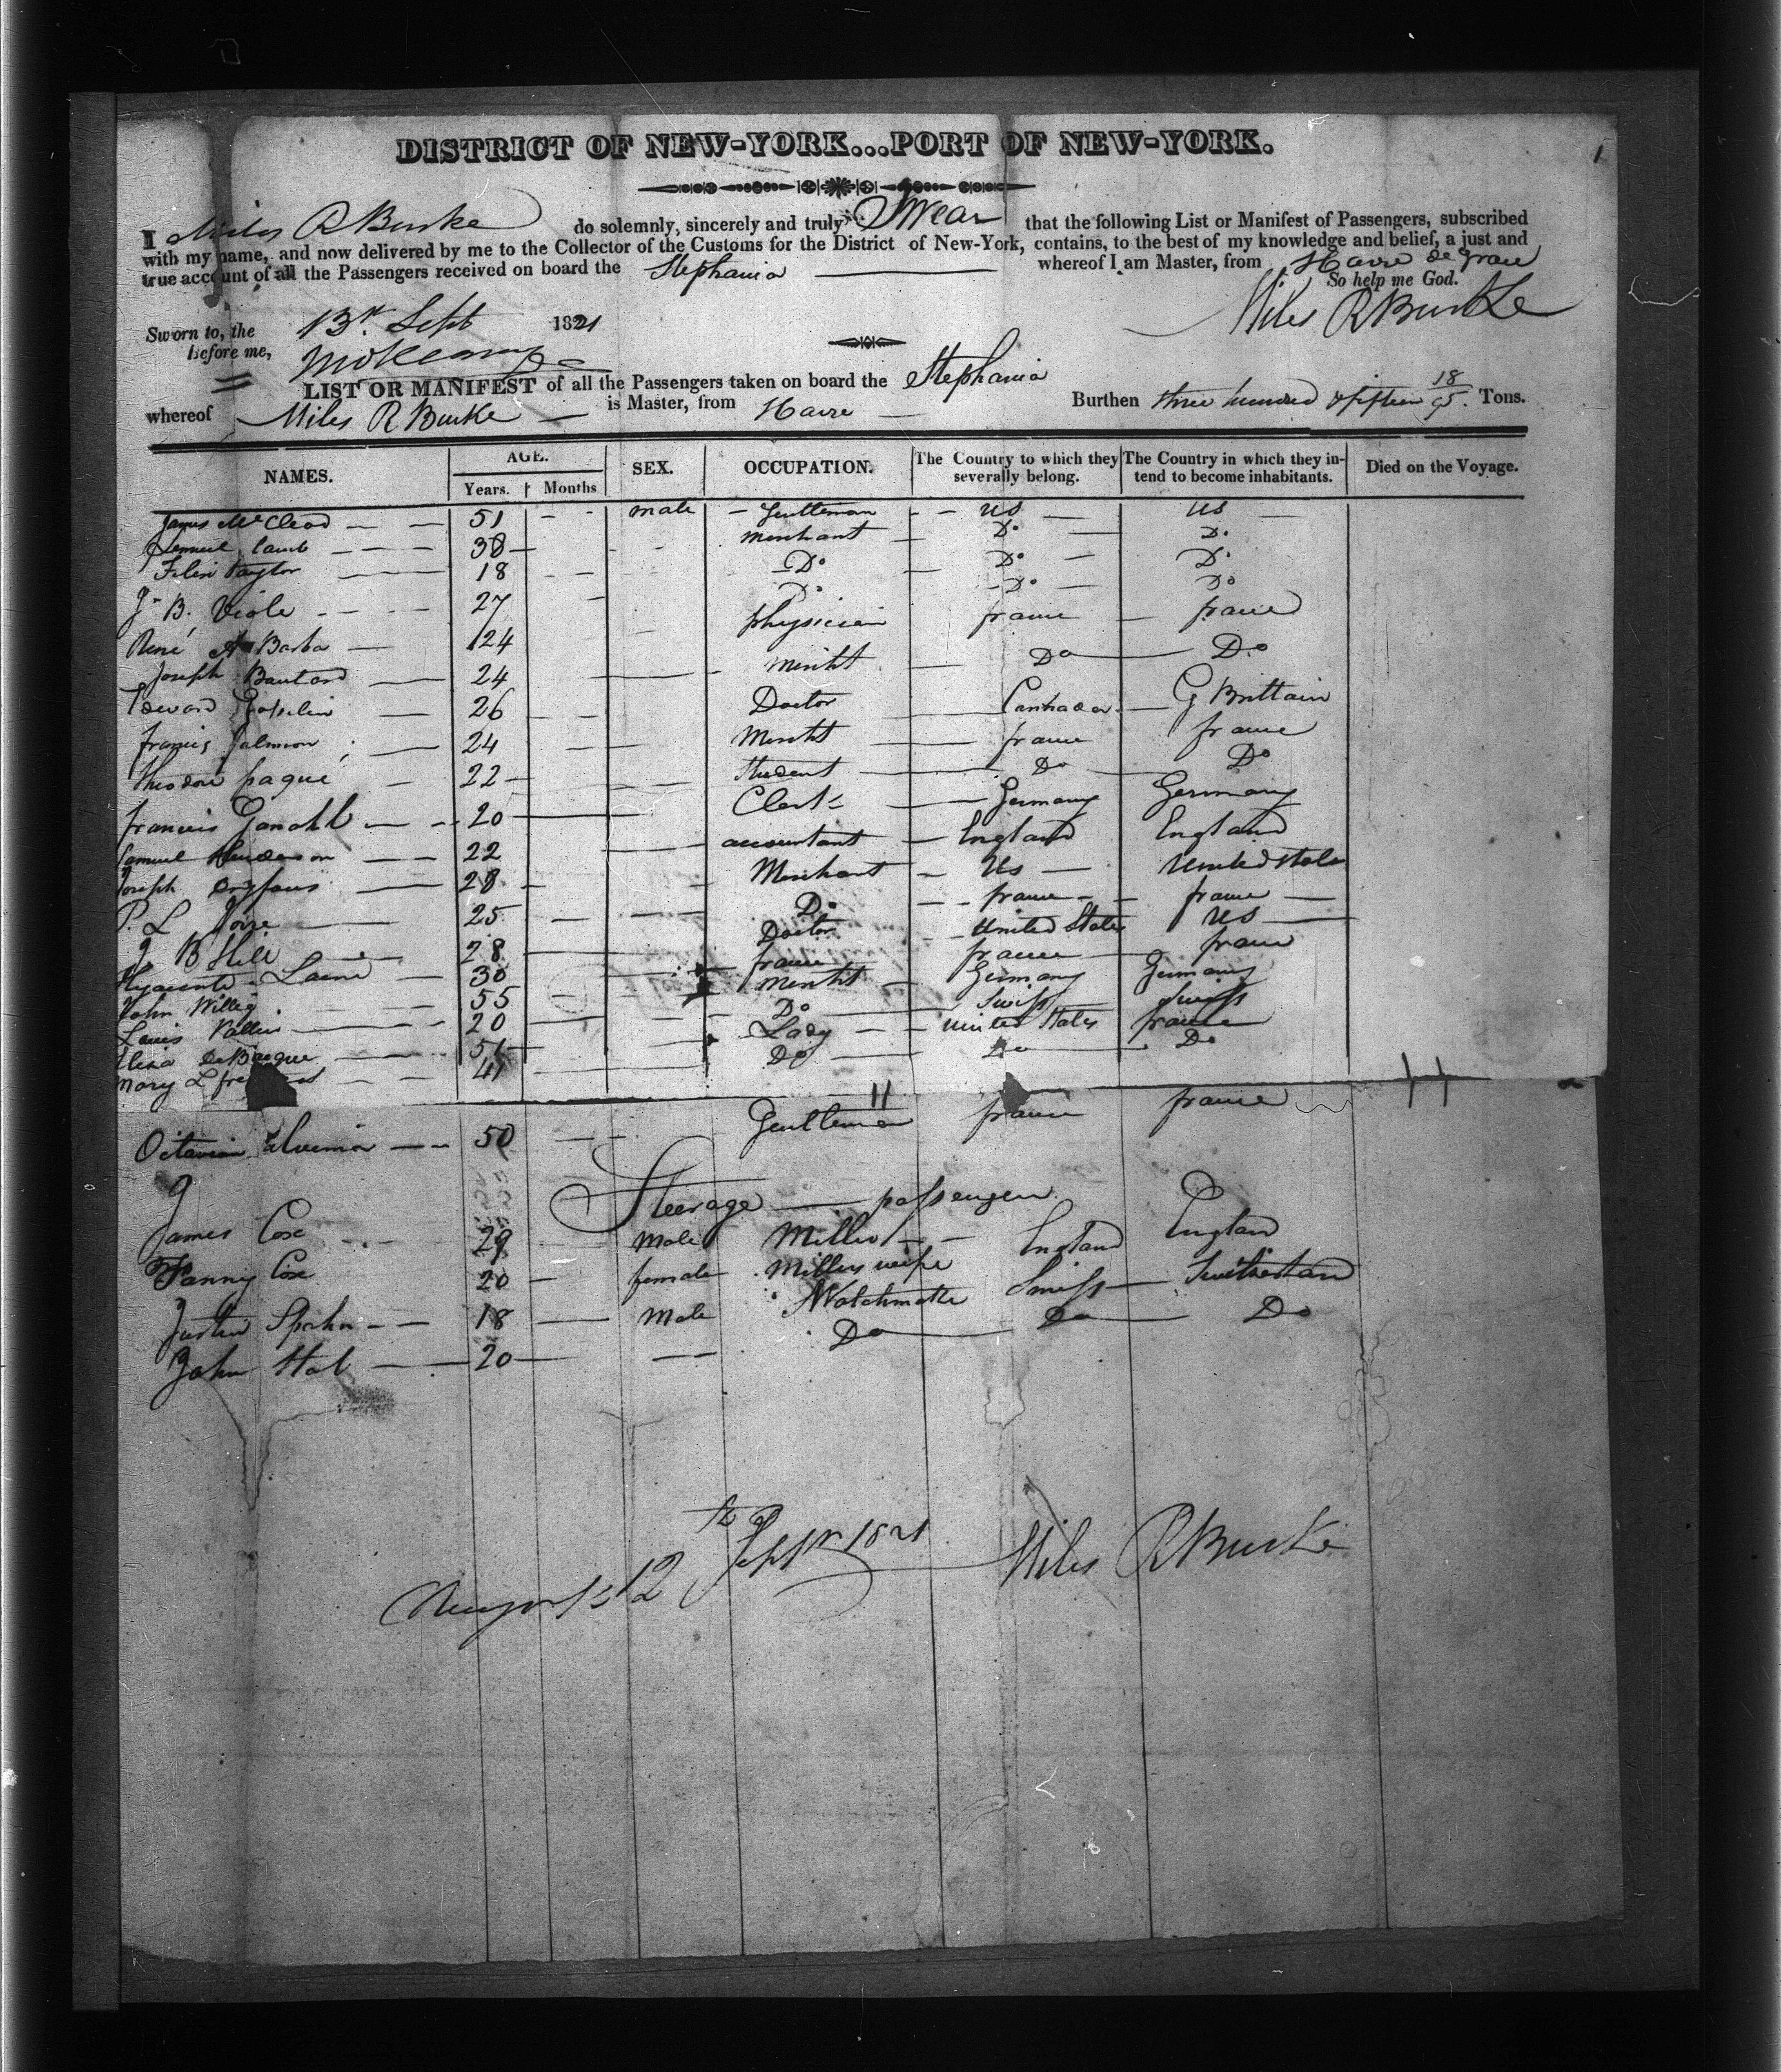 1
DISTRICT OF NEW-YORK...PORT OF NEW-YORK.
I Miles R Burke do solemnly, sincerely and truly Swear that the following List or Manifest of Passengers, subscribed
with my name, and now delivered by me to the Collector of the Customs for the District of New-York, contains, to the best of my knowledge and belief, a just and
true account of all the Passengers received on board the Stephania whereof I am Master, from Havre de Grace
So help me God.
Sworn to, the 13th Sept 1821 Miles R Burke
before me,
LIST OR MANIFEST of all the Passengers taken on board the Stephania
whereof Miles R Burke is Master, from Havre Burthen three hundred & fifteen 18/95 Tons.
NAMES. AGE. Years. Months SEX. OCCUPATION. The Country to which they severally belong. The Country in which they intend to become inhabitants. Died on the Voyage.
James McCleod 51 male Gentleman US US
Lemuel Lamb 38 merchant Do Do
Taylor 18 Do Do Do
J. B. Viole 27 Do Do Do
René A Barba 24 physician france france
Joseph 24 Mercht Do Do
Edward 26 Doctor Cannada G Brittain
francis Salmon 24 Mercht france france
Theodore paqué 22 Student Do Do
francis Ganahl 20 Clerk Germany Germany
Samuel Henderson 22 accountant England England
Joseph 28 Merchant Us United States
P. L 25 Do france france
J B Hill 28 Doctor United States US
Hyacinte Laine 30 france france france
John Willig 55 mercht Germany Germany
Louis 20 Do Swiss Swiss
Eliza DeBaque Lady United States france
Mary L 41 Do Do Do
Octavian 50 Gentleman france france
Steerage passengers
James Cox 29 Male Miller England England
Fanny Cox 20 female Millers weife
Justin Spahn 18 Male Watchmaker Swiss Switherland
John Stal 20 Do Do Do
Newyork 12th Septr 1821 Miles R Burke